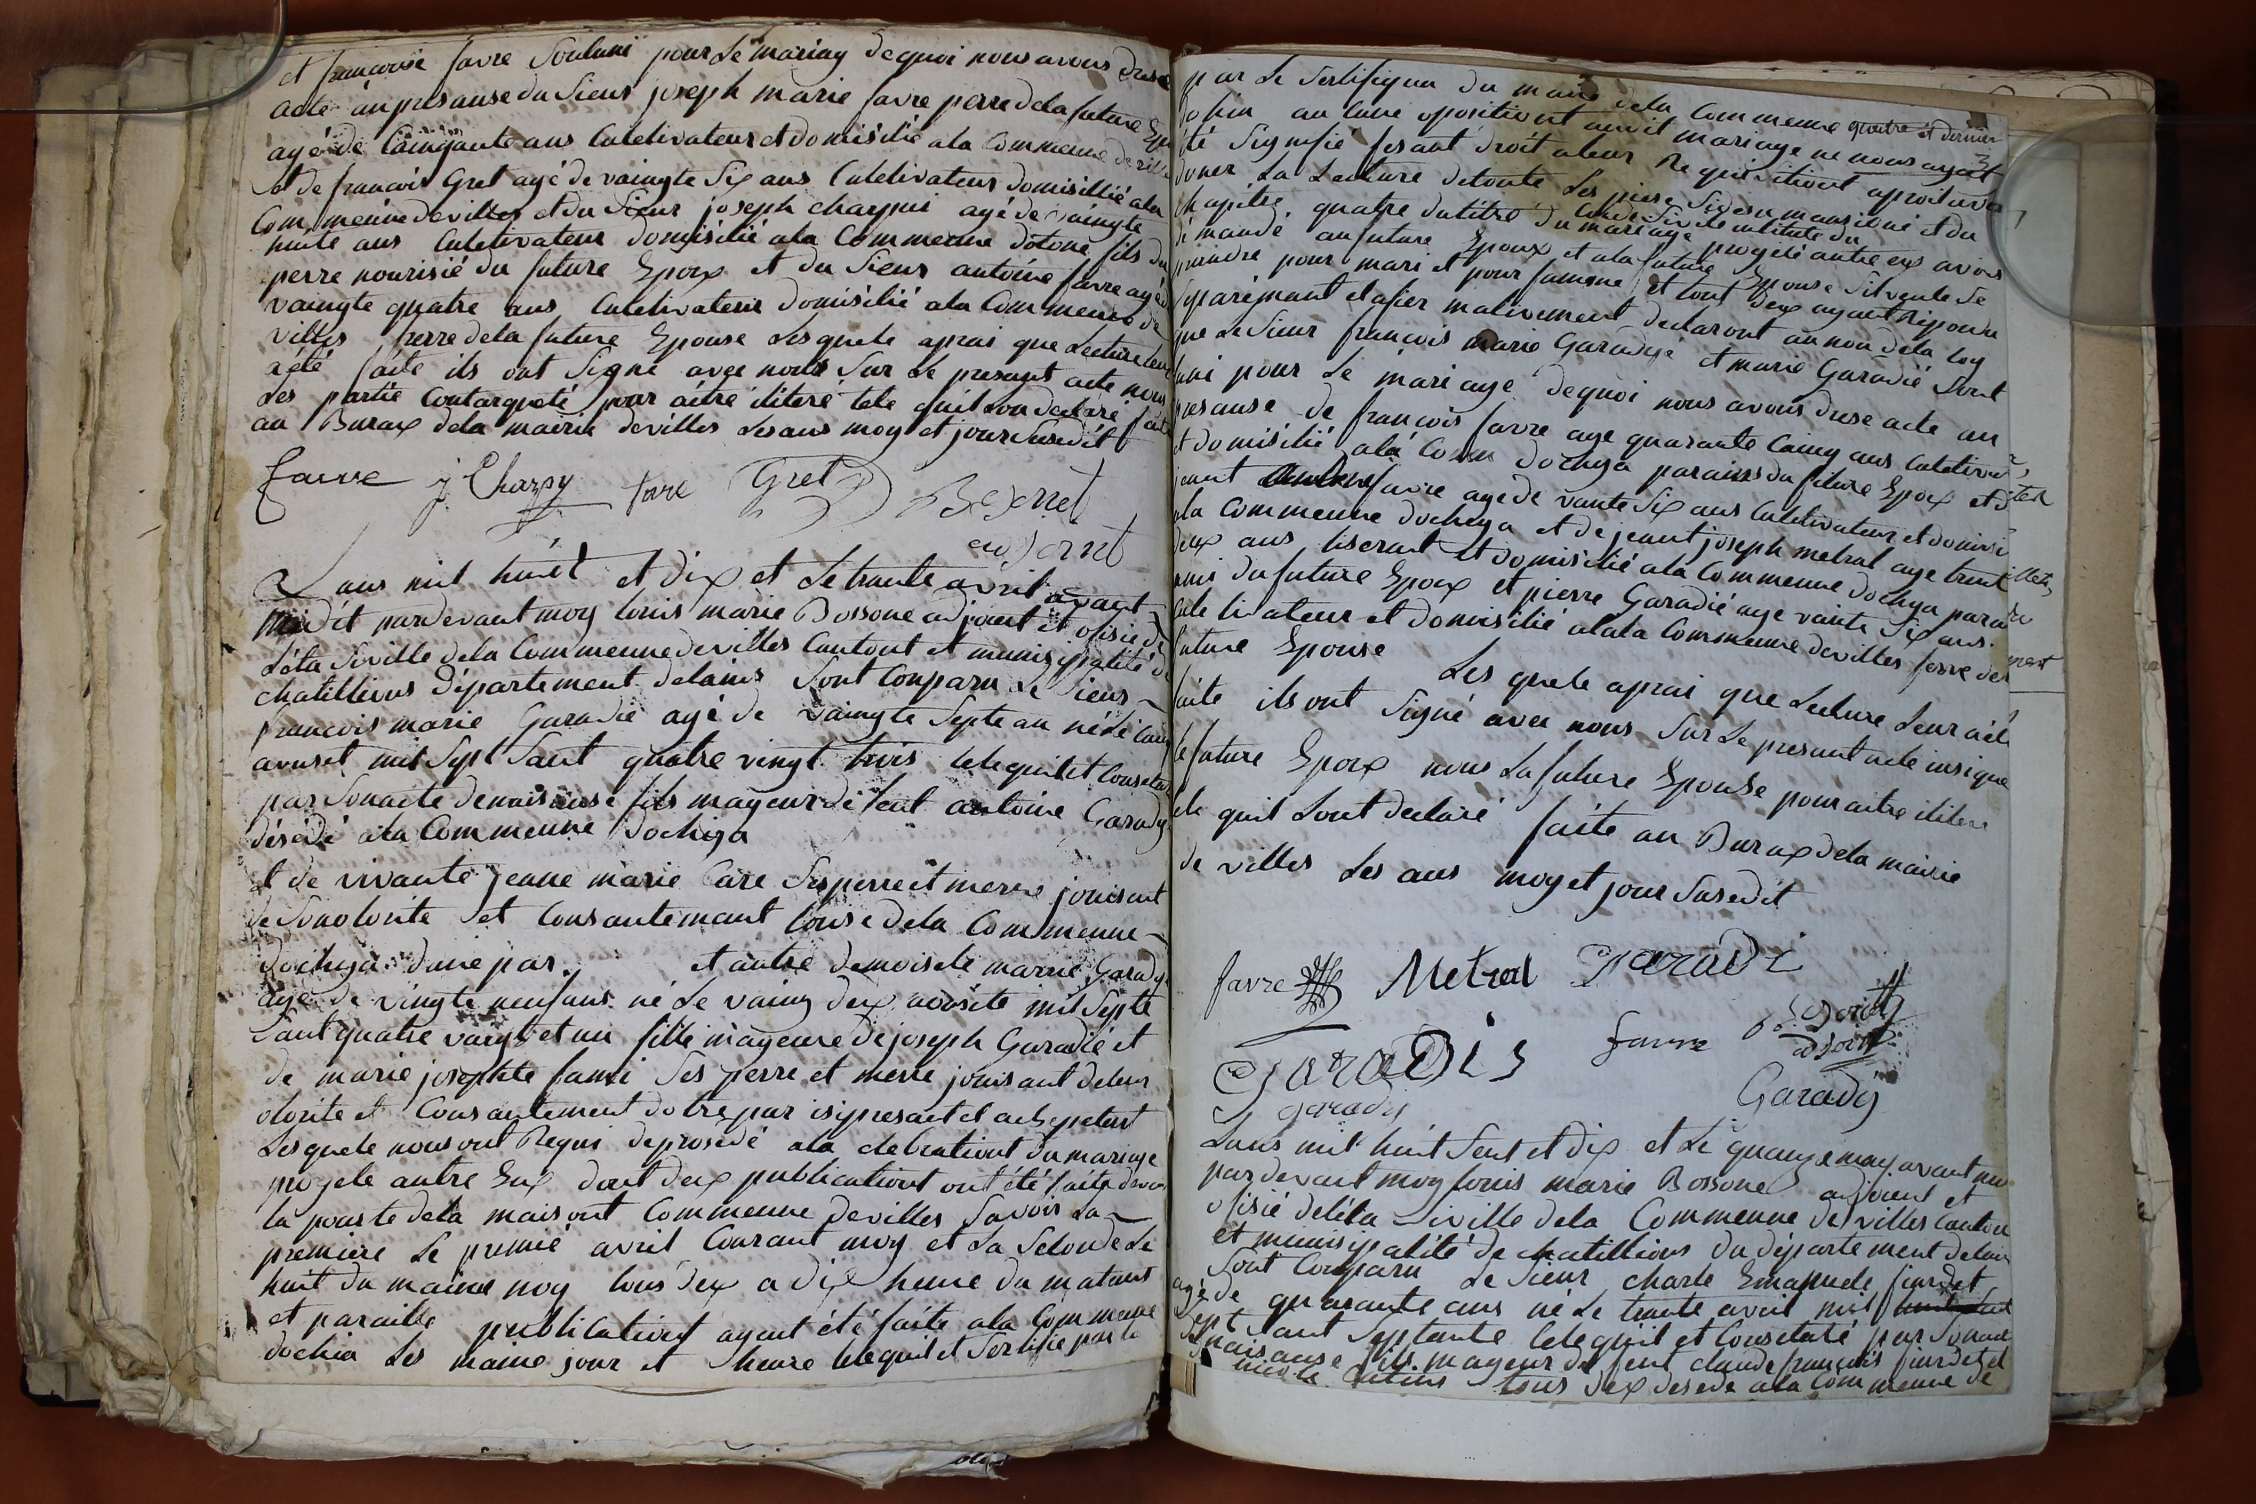 et françoise favre Sont uni pour Le mariag dequoi nous avons dresé
acte an presanse du Sieur joseph marie favre perre dela future
agé de Cainquante ans Culetivateur et domisilié ala Commeune de
et de françois Gret agé de vaingte Six ans Culetivateur domisillié ala
Commeune devilles et du Sieur joseph charpui agé de vaingte
huite ans Culetivateur domisilié ala Commeune dotone fils du
perre nourisié du future Epoux et du Sieur antoine favre agé de
vaingte quatre ans Culetivateur domisilié ala Commeune de
villes frerre dela future Epouse Lesquele aprai que Lecture leur
aété faite ils ont Signé avec nous Sur Le presant acte nous
Les partie Contarqueté pour aitre iliteré tele quil Lon declaré fait
au Buraux dela mairie devilles Les ans moy et jour Susedit
favre j Charpy favre Gret
Lans mil huit et dix et Le trante avril avant
midit pardevant moy Louis marie Bossone adjouent et ofisié de
Léta Siville dela Commeune devilles Cantont et munisipalité de
chatillions département delains Sont Conparu Le Sieur
françois marie Garadié agé de vaingte Septe an né Le
avuset mil Sept Sant quatre vingt trois telequilet Consetaté
par Sonacte denaisanse fils mageur de feut antoine Garady
désédé ala Commeune dochiya
et de vivante jeane marie Care Ses perre et merre jouisant
de Sonolonte et Consantemant Louise dela Commeune
dochiya dune par et autre demoisele marie Garady
agé de vingte neuf ans né Le vaing deux avosite mil Septe
Sant quatre vaingt et un fille mageure de joseph Garadié et
de marie josephte fami Ses perre et merre jouisant deleur
olonte et Consantement dotre par isipresant et
Lesquele nous ont Requi deprosédé ala celebrationt du mariage
projeté autre Eux dont deux publicationt ont été faite devant
la pourte dela maisont Commeune Devilles Savoir La
premiere Le premié avril Courant moy et La Seconde Le
huit du maime moy tous dex a dix heure du matant
et paraille publicationt ayant été faite ala Commeune
dochia Les maime jour et heure telequil et Sertifié par le
par Le Sertifiquat du maire dela Commeune quatre et dernier
dochia au cune opositiont audit mariage ne nous ayant
été Signifié fesant droit aleur Requisitiont aprai avoir
doner La Lecture detoute Les piese Sidesu mansioné et du
chapitre quatre dutitre du Code Sivile intitule du
du mariage projeté autre eux avons
demandé au future Epoux et ala future Epouse Silveule Se
prandre pour mari et pour famme et tout deux ayant Repondu
Séparémant et afier mativement declaront au non dela loy
que Le Sieur françois marie Garadyé et marie Garadié Sont
uni pour Le mariage dequoi nous avons dresé acte an
presanse de françois favre age quarante Cainq ans Culetivateur
et domisilié ala Comm dochiya parains du future Epoux et
jeant favre age de vante Six ans Culetivateur et domisi
ala Commeune dochiya et de jeant joseph metral age trente
deux ans tiserant et domisilié ala Commeune dochya parain
ami du future Epoux et pierre Garadié age vainte Six ans
culetivateur et domisilié alala Commeune devilles frerre dela
future Epouse Les quele aprai que Lecture Leur aété
faite ils ont Signé avec nous Sur Le presant acte insique
Le future Epoux nous La future Epouse pour aitre iliteré
tele quil Lont declaré faite au Buraux dela mairie
de villes Les ans moy et jour Susedit
favre Metral Garadi
Garadis favre
garady Garady
Lans mil huit Sent et dix et Le quanze may avant mi
pardevant moy Louis marie Bossone adjouent et
ofisié deléta Siville dela Commeune de villes Cantont
et munisipalité de chatillions du département delains
Sont Conparu Le Sieur charle Emanuele
agé de quarante ans né Le trante avril mil
Sept Sant Septante telequil et Consetaté par Sonacte
naisanse fils mageur de feut claude françois et
tous dex desede ala Commeune de